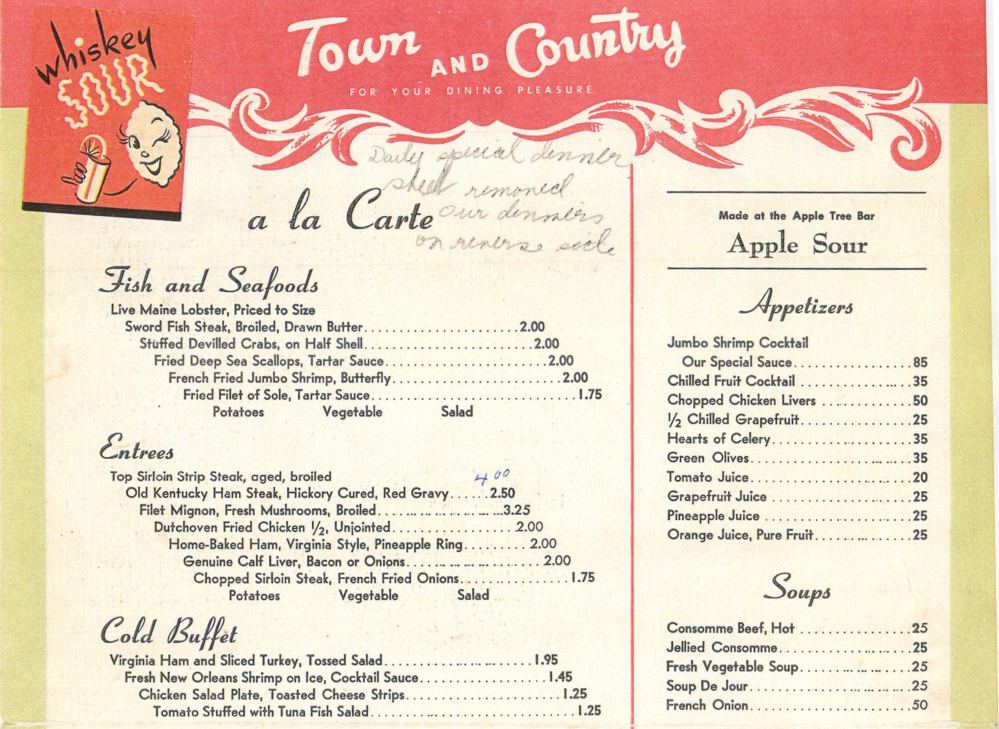 whiskey
SOUR
Town AND Country
FOR YOUR DINING PLEASURE
Daily special dinner
sheet removed
our dinners
on reverse side
a la Carte
Fish and Seafoods
Live Maine Lobster, Priced to Size
Sword Fish Steak, Broiled, Drawn Butter 2.00
Stuffed Devilled Crabs, on Half Shell 2.00
Fried Deep Sea Scallops, Tartar Sauce 2.00
French Fried Jumbo Shrimp, Butterfly 2.00
Fried Filet of Sole, Tartar Sauce 1.75
Potatoes Vegetable Salad
Entrees
Top Sirloin Strip Steak, aged, broiled 4.00
Old Kentucky Ham Steak, Hickory Cured, Red Gravy 2.50
Filet Mignon, Fresh Mushrooms, Broiled 3.25
Dutchoven Fried Chicken 1/2, Unjointed 2.00
Home-Baked Ham, Virginia Style, Pineapple Ring 2.00
Genuine Calf Liver, Bacon or Onions 2.00
Chopped Sirloin Steak, French Fried Onions 1.75
Potatoes Vegetable Salad
Cold Buffet
Virginia Ham and Sliced Turkey, Tossed Salad 1.95
Fresh New Orleans Shrimp on Ice, Cocktail Sauce 1.45
Chicken Salad Plate, Toasted Cheese Strips 1.25
Tomato Stuffed with Tuna Fish Salad 1.25
Made at the Apple Tree Bar
Apple Sour
Appetizers
Jumbo Shrimp Cocktail
Our Special Sauce 85
Chilled Fruit Cocktail 35
Chopped Chicken Livers 50
1/2 Chilled Grapefruit 25
Hearts of Celery 35
Green Olives 35
Tomato Juice 20
Grapefruit Juice 25
Pineapple Juice 25
Orange Juice, Pure Fruit 25
Soups
Consomme Beef, Hot 25
Jellied Consomme 25
Fresh Vegetable Soup 25
Soup De Jour 25
French Onion 50